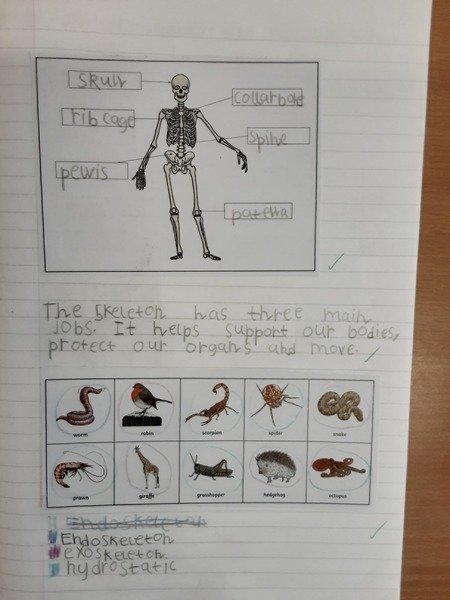 skull
collarbone
rib cage
spine
pelvis
patella
The skeleton has three main
jobs. It helps support our bodies,
protect our organs and move.
worm robin scorpion spider snake
prawn giraffe grasshopper hedgehog octopus
Endoskeleton
Endoskeleton
exoskeleton
hydrostatic